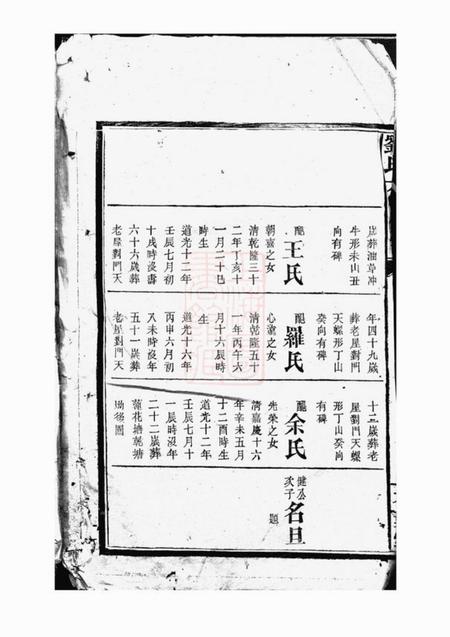 劉氏
歲葬油草冲
牛形未山丑
向有碑
配王氏
朝喜之女
清乾隆三十
二年丁亥十
一月二十巳
時生
道光十二年
壬辰七月初
十戌時沒壽
六十六歲葬
老屋對門天
年四十九歲
葬老屋對門
天螺形丁山
癸向有碑
配羅氏
心
之女
清乾隆五十
一年丙午六
月十六辰時
生
道光十六年
丙申六月初
八未時沒年
五十一歲葬
老屋對門天
十二歲葬老
屋對門天螺
形丁山癸向
有碑
配余氏
先榮之女
清嘉慶十六
年辛未五月
十二酉時生
道光十二年
壬辰七月十
一辰時沒年
二十二歲葬
蓮花塘乾塘
健公次子名旦
題